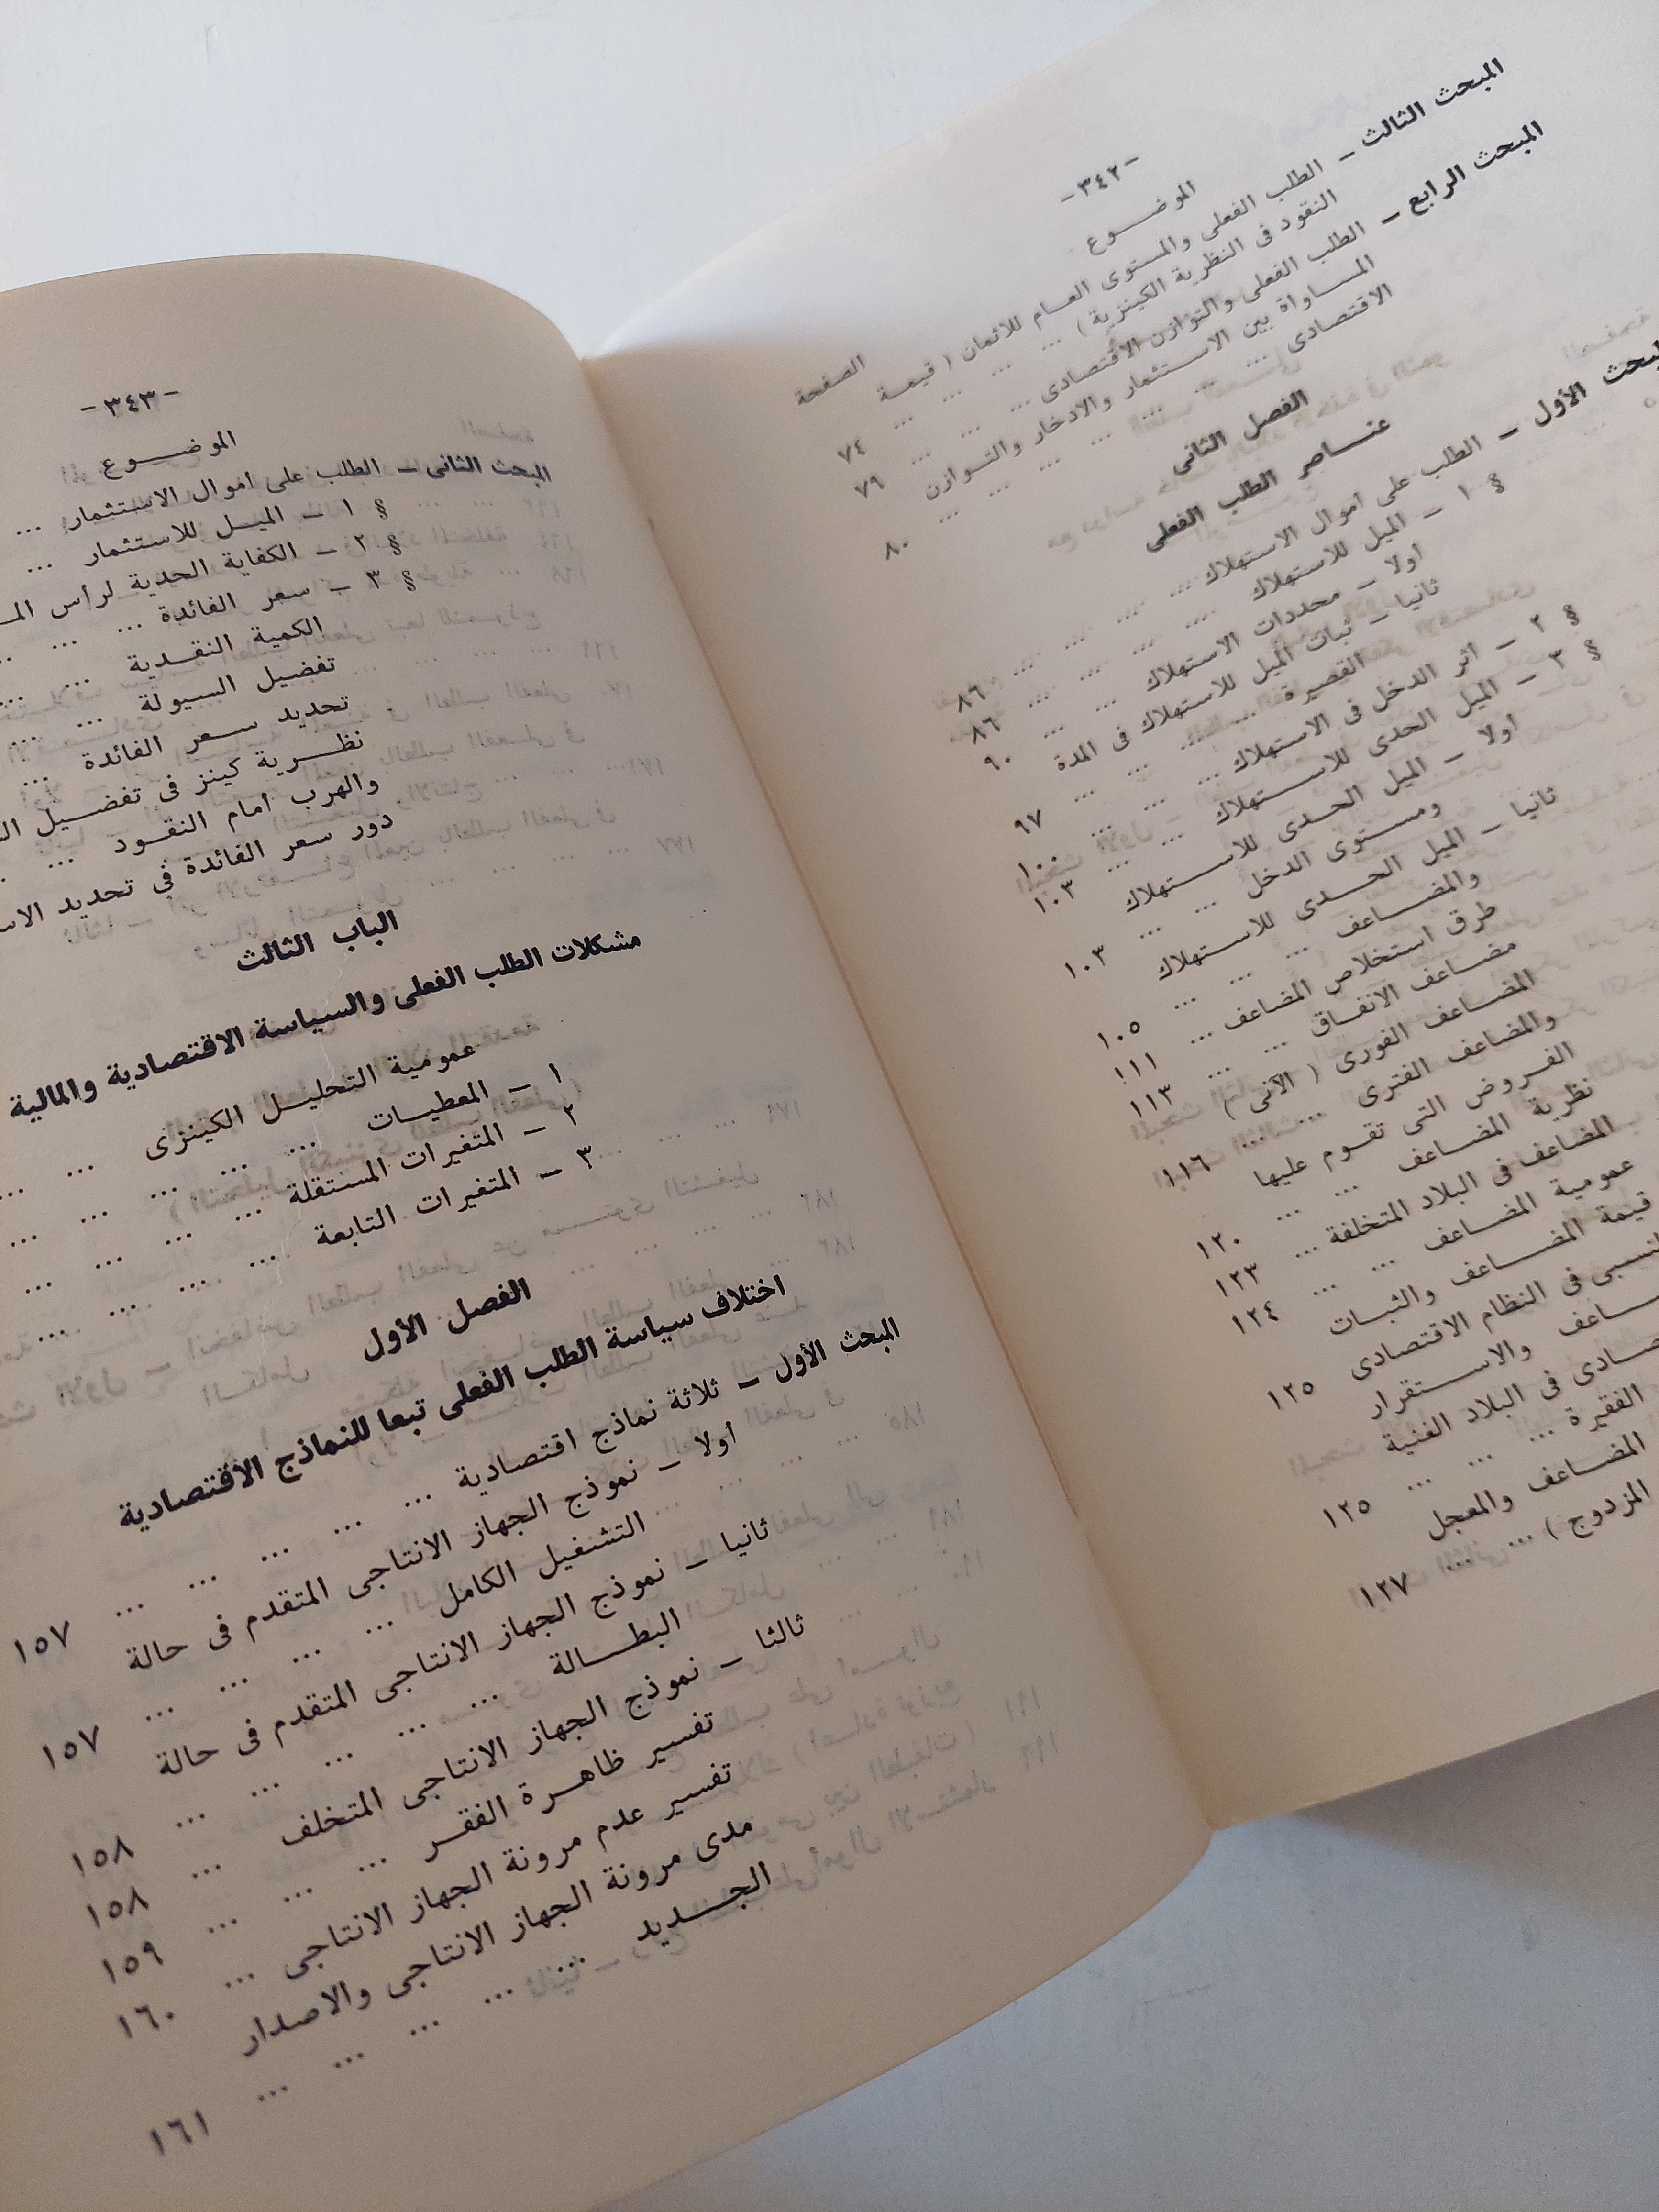 -٣٤٢-
الموضـــوع الصفحة
المبحث الثالث - الطلب الفعلى والمستوى العـام للاثمان ( قيمـة
النقود فى النظرية الكينزية ) ... ... ... ... ٧٤
المبحث الرابع - الطلب الفعلى والتوازن الاقتصادى ... ... ... ٧٩
المسـاواة بين الاستثمار والادخار والتـوازن
الاقتصادى ... ... ... ... ... ... ٨٠
الفصل الثانى
عنـاصر الطلب الفعلى
المبحث الأول - الطلب على أموال الاستهلاك ... ... ... ... ٨٦
§ ١ - الميل للاستهلاك ... ... ... ... ٨٦
أولا - محددات الاستهلاك ... ... ... ٩٠
ثانيا - ثبات الميل للاستهلاك فى المدة
القصيرة ... ... ... ... ٩٧
§ ٢ - أثر الدخل فى الاستهلاك ... ... ... ١٠٠
§ ٣ - الميل الحدى للاسـتهلاك ... ... ١٠٣
أولا - الميل الحـدى للاسـتهلاك
ومسـتوى الدخل ... ... ١٠٣
ثانيا - الميل الحـدى للاسـتهلاك
والمضـاعف ... ... ... ١٠٥
طرق استخلاص المضاعف ... ١١١
مضـاعف الانفـاق ... ... ١١٣
المضـاعف الفورى ( الآنى )
والمضاعف الفترى ... ... ١١٦
الفـروض التى تقـوم عليها
نظرية المضـاعف ... ... ١٢٠
المضاعف فى البلاد المتخلفة ... ١٢٣
عمومية المضـاعف ... ... ١٢٤
قيمة المضـاعف والثبـات
النسبى فى النظام الاقتصادى ١٢٥
والاسـتقرار
فى البلاد الغنية
الفقيرة ... ... ... ١٢٥
المضـاعف والمعجل
المزدوج ) ... ... ١٢٧
-٣٤٣-
الموضـــوع
المبحث الثانى - الطلب على أموال الاستثمار ...
§ ١ - الميـل للاستثمار ...
§ ٢ - الكفاية الحدية لرأس
§ ٣ - سعر الفائدة ... ...
الكمية النقـدية ... ...
تفضيل السيولة ... ...
تحديد سـعر الفائدة ...
نظـرية كينز فى تفضـيل
والهرب أمام النقـود ...
دور سعر الفائدة فى تحديد
الباب الثالث
مشكلات الطلب الفعلى والسياسة الاقتصادية والمالية
عمومية التحليـل الكينزى ... ...
١ - المعطيـات ... ... ... ... ...
٢ - المتغيرات المستقلة ... ... ... ...
٣ - المتغيرات التابعة ... ... ... ...
الفصل الأول
اختلاف سياسة الطلب الفعلى تبعا للنماذج الاقتصادية
المبحث الأول - ثلاثة نماذج اقتصادية ... ... ... ... ... ١٥٧
أولا - نموذج الجهاز الانتاجى المتقدم فى حالة
التشغيل الكامل ... ... ... ... ١٥٧
ثانيا - نموذج الجهاز الانتاجى المتقدم فى حالة
البطـــالة ... ... ... ... ... ١٥٨
ثالثا - نموذج الجهاز الانتاجى المتخلف ... ١٥٨
تفسير ظاهـرة الفقـر ... ... ... ١٥٩
تفسير عدم مرونة الجهاز الانتاجى ... ١٦٠
مدى مرونة الجهاز الانتاجى والاصدار
الجـــديد ... ... ... ... ... ١٦١